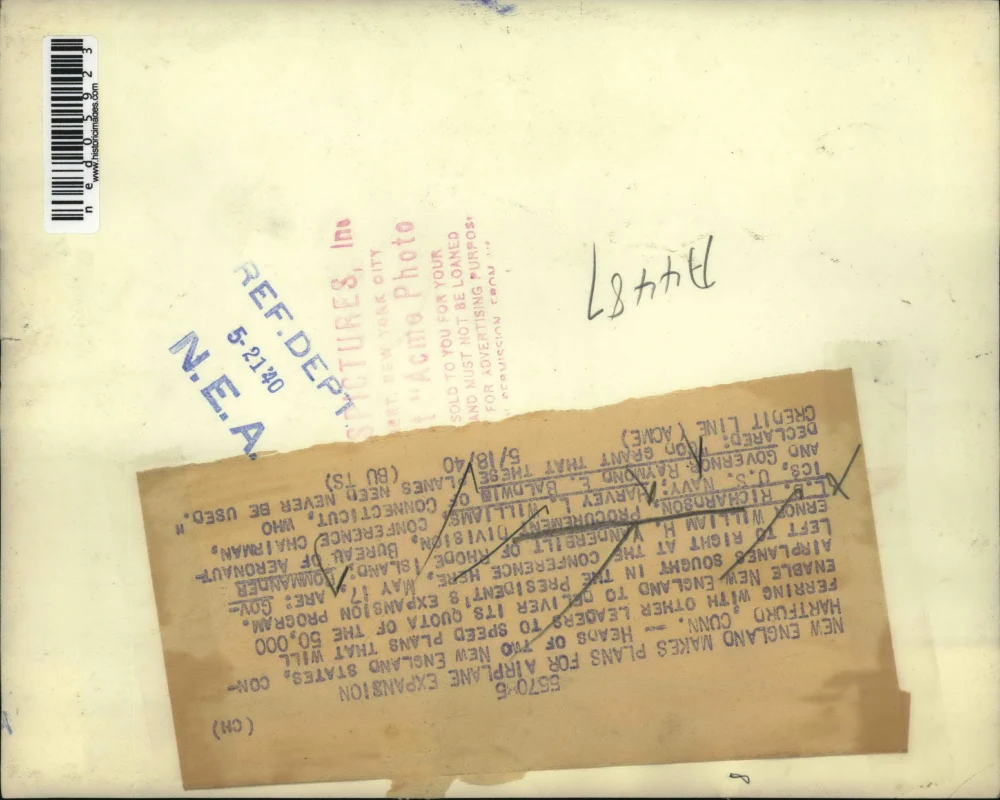 ned05923
www.historicimages.com
REF. DEPT
5-21'40
N.E.A.
PICTURES, Inc
NEW YORK CITY
"Acme Photo
SOLD TO YOU FOR YOUR
AND MUST NOT BE LOANED
FOR ADVERTISING PURPOS
PERMISSION FROM
A4487
(CH)
5570-5
NEW ENGLAND MAKES PLANS FOR AIRPLANE EXPANSION
HARTFORD, CONN. — HEADS OF TWO NEW ENGLAND STATES, CON-
FERRING WITH OTHER LEADERS TO SPEED PLANS THAT WILL
ENABLE NEW ENGLAND TO DELIVER ITS QUOTA OF THE 50,000
AIRPLANES SOUGHT IN THE PRESIDENT'S EXPANSION PROGRAM.
LEFT TO RIGHT AT THE CONFERENCE HERE, MAY 17, ARE: GOV-
ERNOR WILLIAM H. VANDERBILT OF RHODE ISLAND; COMMANDER
RICHARDSON, PROCUREMENT DIVISION, BUREAU OF AERONAUT-
ICS, U.S. NAVY; HARVEY L. WILLIAMS, CONFERENCE CHAIRMAN,
AND GOVERNOR RAYMOND E. BALDWIN OF CONNECTICUT, WHO
DECLARED: "GOD GRANT THAT THESE PLANES NEED NEVER BE USED."
CREDIT LINE (ACME) 5/18/40 (BU TS)
8